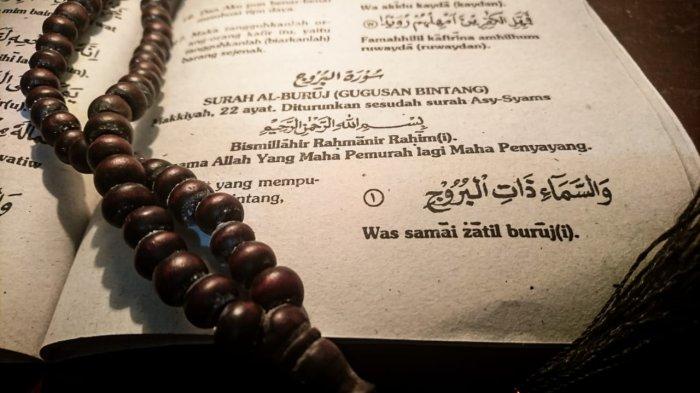 mim bain
18. Dan Aku pun benar-benar
membuat tipu daya.
Maka tangguhkanlah or-
ang-orang kafir itu, yaitu
tangguhkanlah (biarkanlah)
barang sejenak.
Wa akīdu kaydā (kaydan).
فَمَهِّلِ الْكٰفِرِيْنَ اَمْهِلْهُمْ رُوَيْدًا
Famahhilil kāfirīna amhilhum
ruwaydā (ruwaydan).
سُوْرَةُ الْبُرُوْجِ
SURAH AL-BURŪJ (GUGUSAN BINTANG)
Makkiyah, 22 ayat. Diturunkan sesudah surah Asy-Syams
بِسْمِ اللّٰهِ الرَّحْمٰنِ الرَّحِيْمِ
Bismillāhir Raḥmānir Raḥīm(i).
nama Allah Yang Maha Pemurah lagi Maha Penyayang.
yang mempu-
bintang,
١ وَالسَّمَاۤءِ ذَاتِ الْبُرُوْجِ
Was samāi żātil burūj(i).